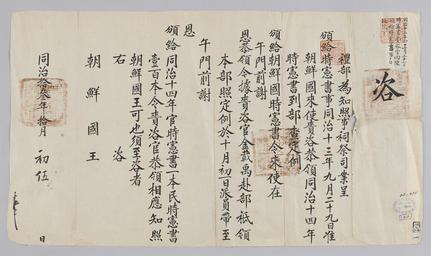 咨
禮部為知照事祠祭司案呈
頒給時憲書事同治十三年九月二十九日准
朝鮮國來使賫咨恭領同治十四年
時憲書到部查定例
頒給朝鮮國時憲書令來使在
午門前謝
恩恭領今據賫咨官金戴禹赴部祗領
本部照定例於十月初一日派員帶至
午門前謝
恩
頒給同治十四年官時憲書一本民時憲書
壹百本令賫咨官恭領相應知照
朝鮮國王可也須至咨者
右咨
朝鮮國王
同治拾叁年拾月初伍日